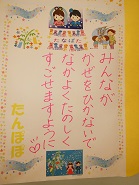 たなばた
みんなが
かぜをひかないで
なかよくたのしく
すごせますように
たんぽぽ